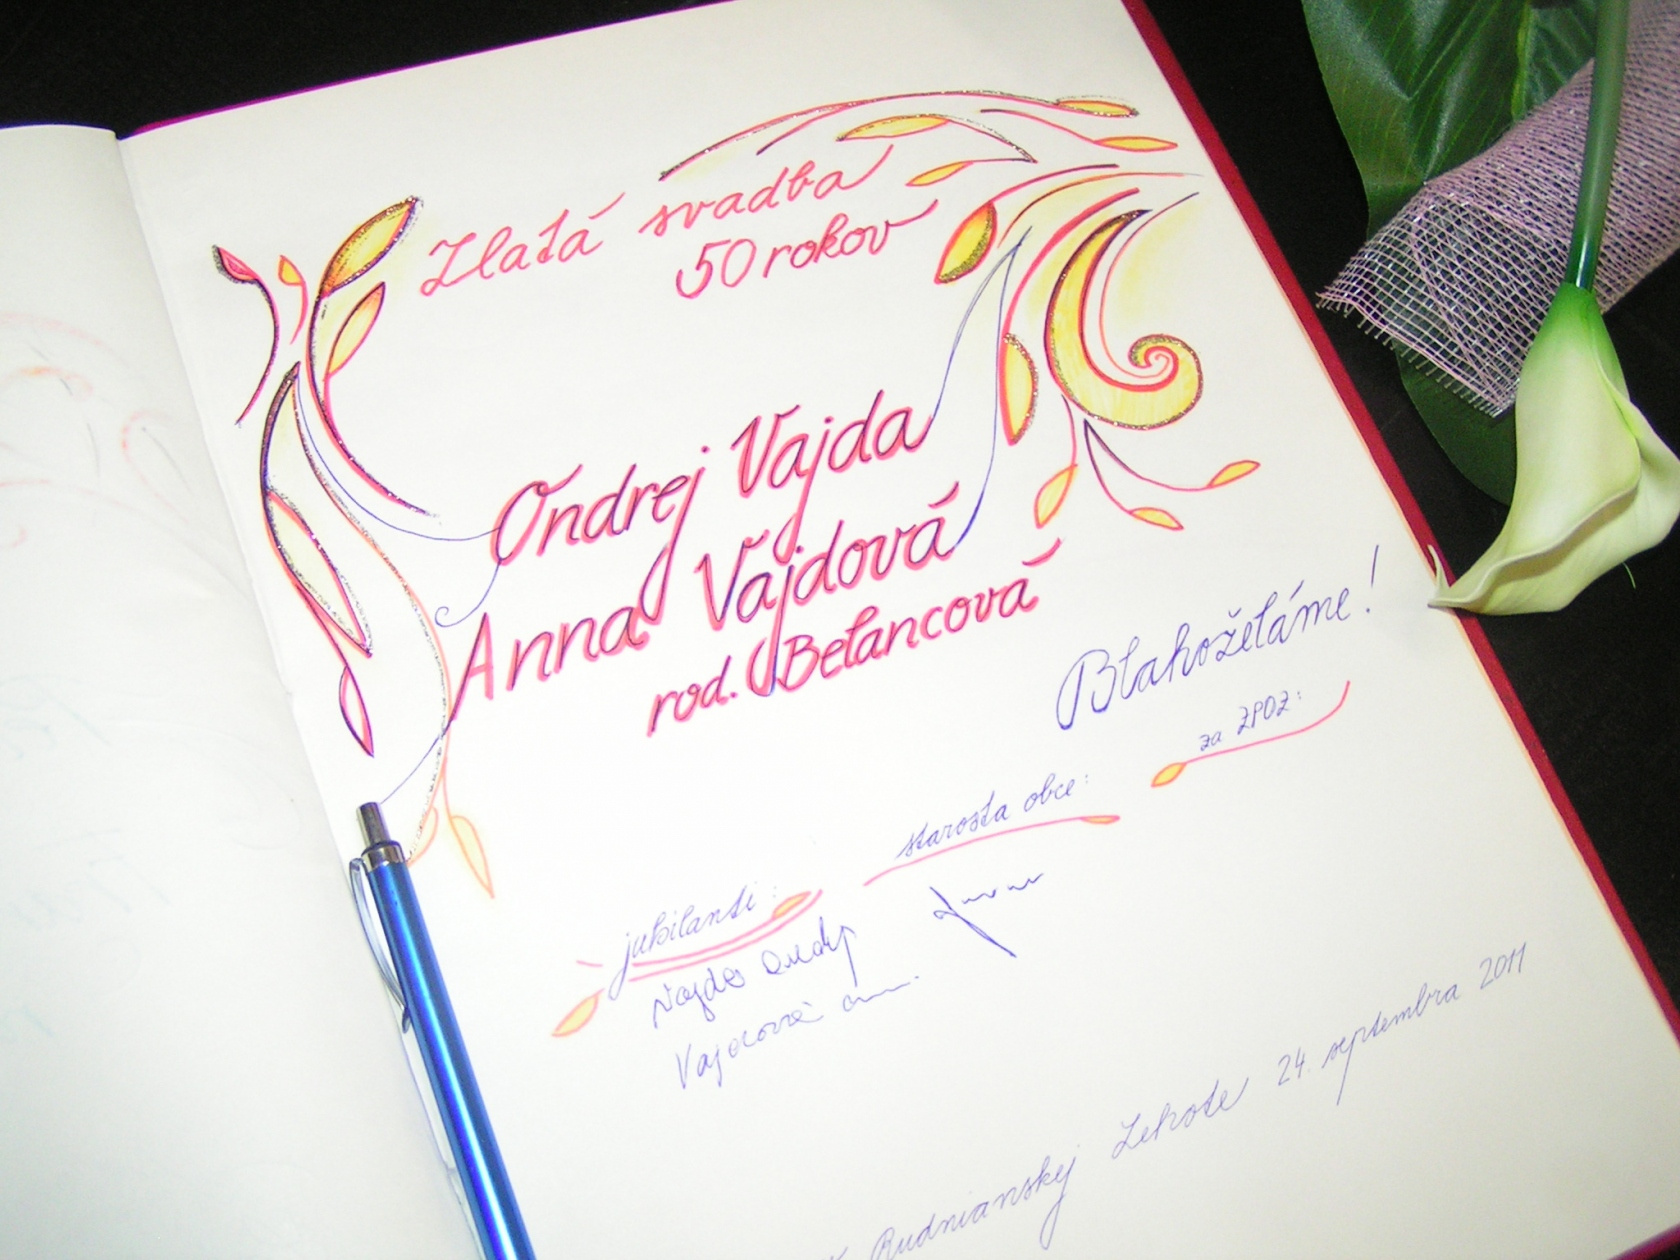 Zlatá svadba
50 rokov
Ondrej Vajda
Anna Vajdová
rod. Belancová
Blahoželáme!
za ZPOZ:
starosta obce:
jubilanti:
Vajda
Vajdová
Rudnianskej Lehote 24. septembra 2011